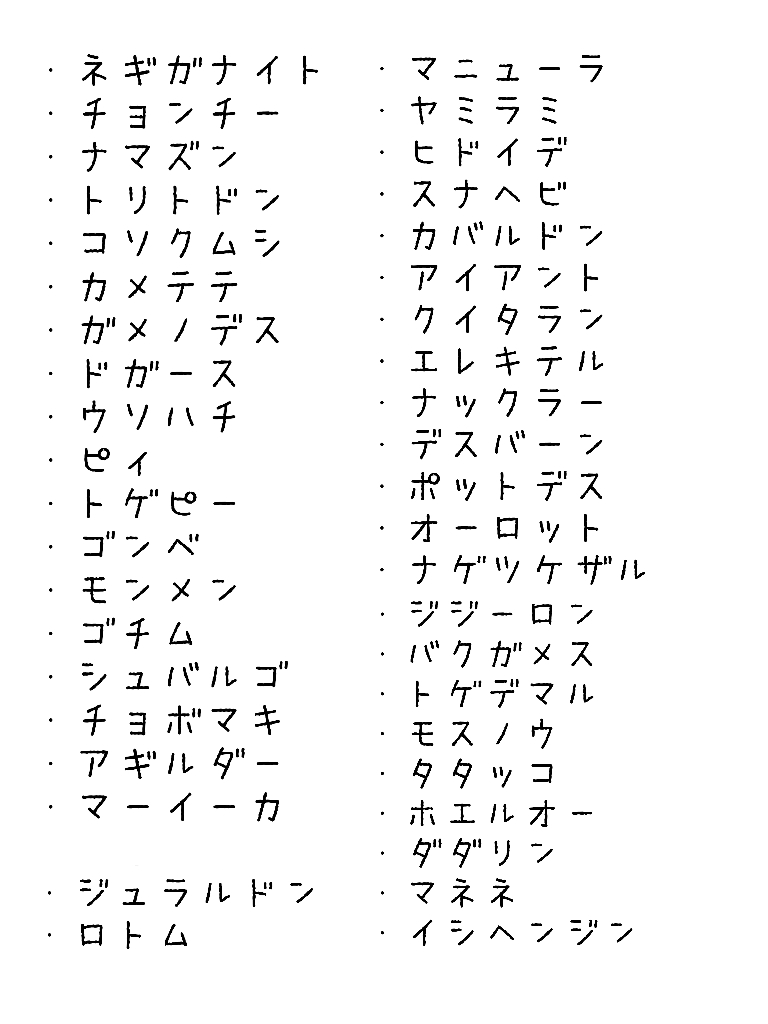 ・ネギガナイト
・チョンチー
・ナマズン
・トリトドン
・コソクムシ
・カメテテ
・ガメノデス
・ドガース
・ウソハチ
・ピィ
・トゲピー
・ゴンベ
・モンメン
・ゴチム
・シュバルゴ
・チョボマキ
・アギルダー
・マーイーカ
・ジュラルドン
・ロトム
・マニューラ
・ヤミラミ
・ヒドイデ
・スナヘビ
・カバルドン
・アイアント
・クイタラン
・エレキテル
・ナックラー
・デスバーン
・ポットデス
・オーロット
・ナゲツケザル
・ジジーロン
・バクガメス
・トゲデマル
・モスノウ
・タタッコ
・ホエルオー
・ダダリン
・マネネ
・イシヘンジン